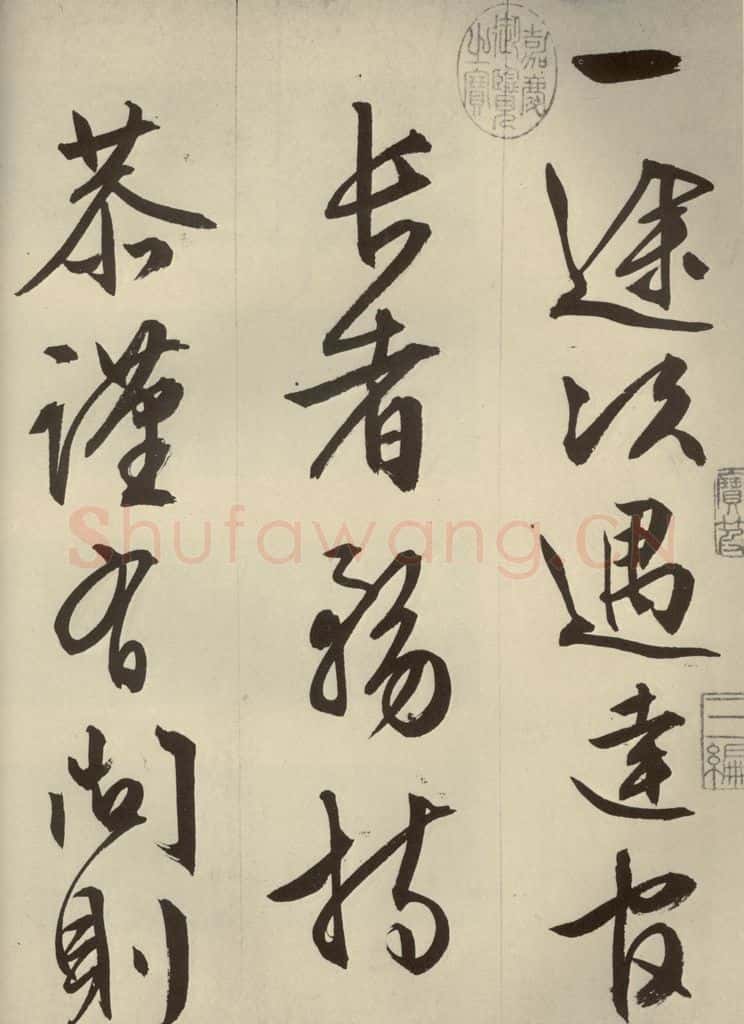 一途次遇達官
長者務持
恭謹有問則
嘉慶御覽之寶
寶笈
三編
Shufawang.CN